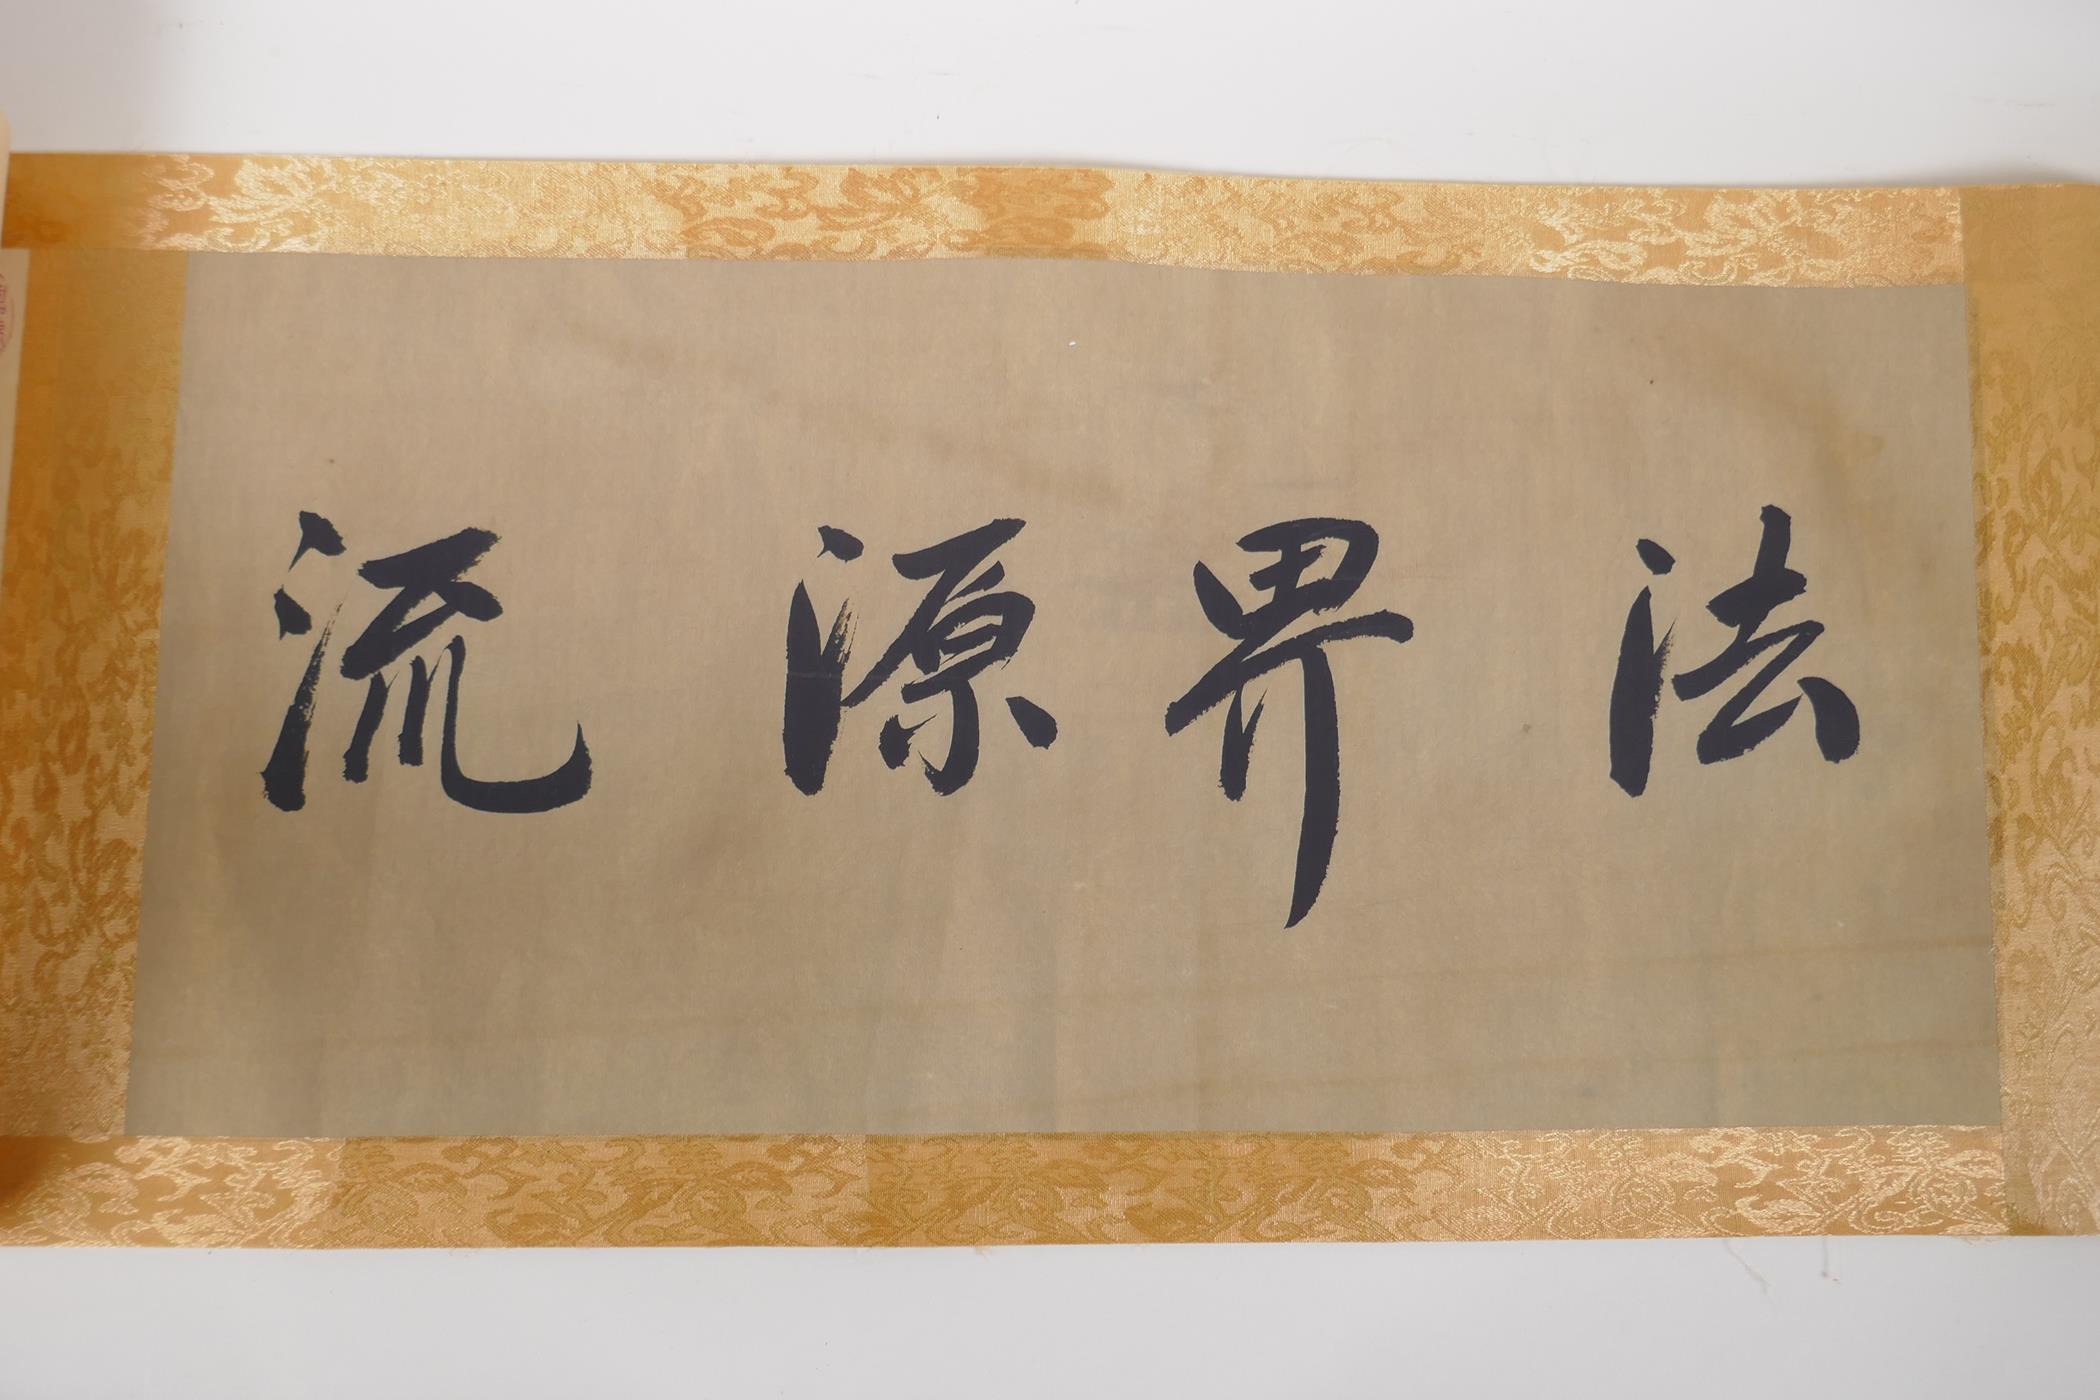 法界源流